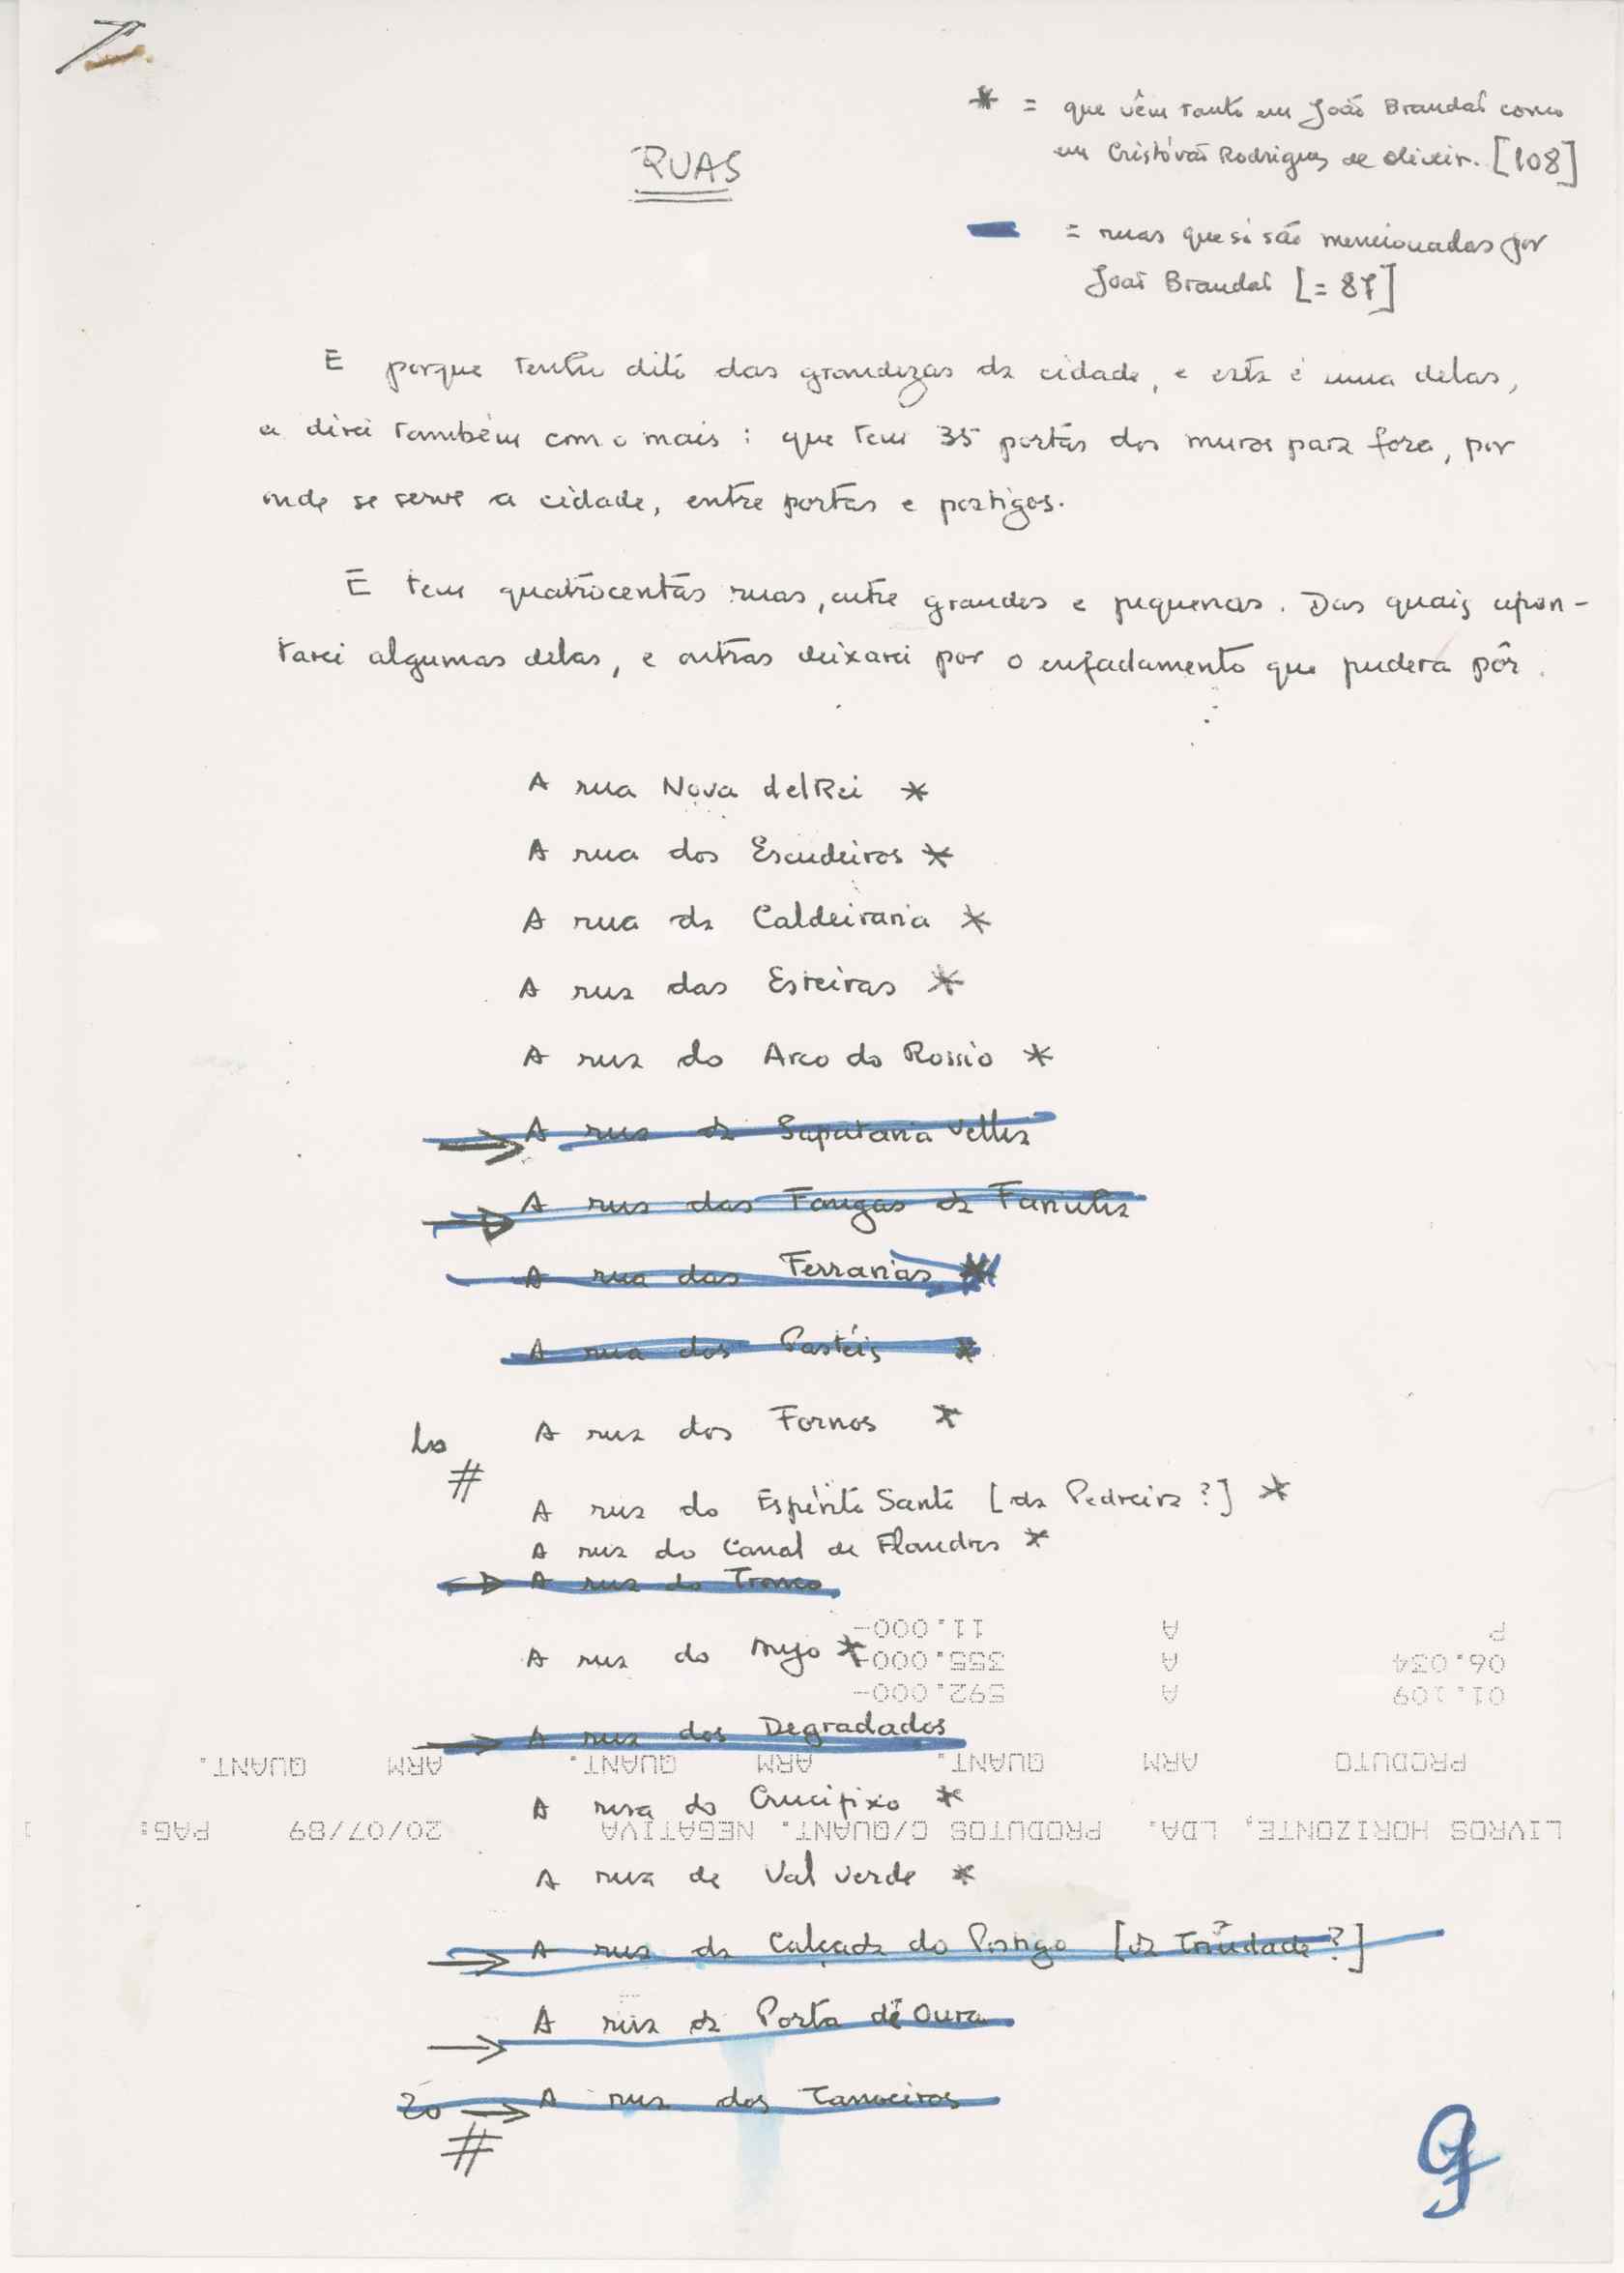 * = que vêm tanto em João Brandão como
em Cristóvão Rodrigues de Oliveir. [108]
RUAS
= ruas que só são mencionadas por
João Brandão [= 87]
E porque tenho dito das grandezas da cidade, e esta é uma delas,
a direi também com o mais : que tem 35 portas dos muros para fora, por
onde se serve a cidade, entre portas e postigos.
E tem quatrocentas ruas, entre grandes e pequenas. Das quais apon-
tarei algumas delas, e outras deixarei por o enfadamento que pudera pôr.
A rua Nova del Rei *
A rua dos Escudeiros *
A rua da Caldeiraria *
A rua das Esteiras *
A rua do Arco do Rossio *
→ A rua da Sapataria Velha
→ A rua das Fangas da Farinha
A rua das Ferrarias *
A rua dos Pastéis *
10 A rua dos Fornos *
#
A rua do Espírito Santo [da Pedreira ?] *
A rua do Canal de Flandres *
→ A rua do Tronco
11.000- A P
A rua do Anjo *
355.000- A 06.034
592.000- A 01.109
→ A rua dos Degradados
PRODUTO ARM QUANT. ARM QUANT. ARM QUANT.
A rua do Crucifixo *
LIVROS HORIZONTE, LDA. PRODUTOS C/QUANT. NEGATIVA 20/07/89 PAG: 1
A rua de Val Verde *
→ A rua da Calçada do Postigo [da Trindade ?]
→ A rua da Porta de Oura
20 → A rua dos Tanoeiros
#